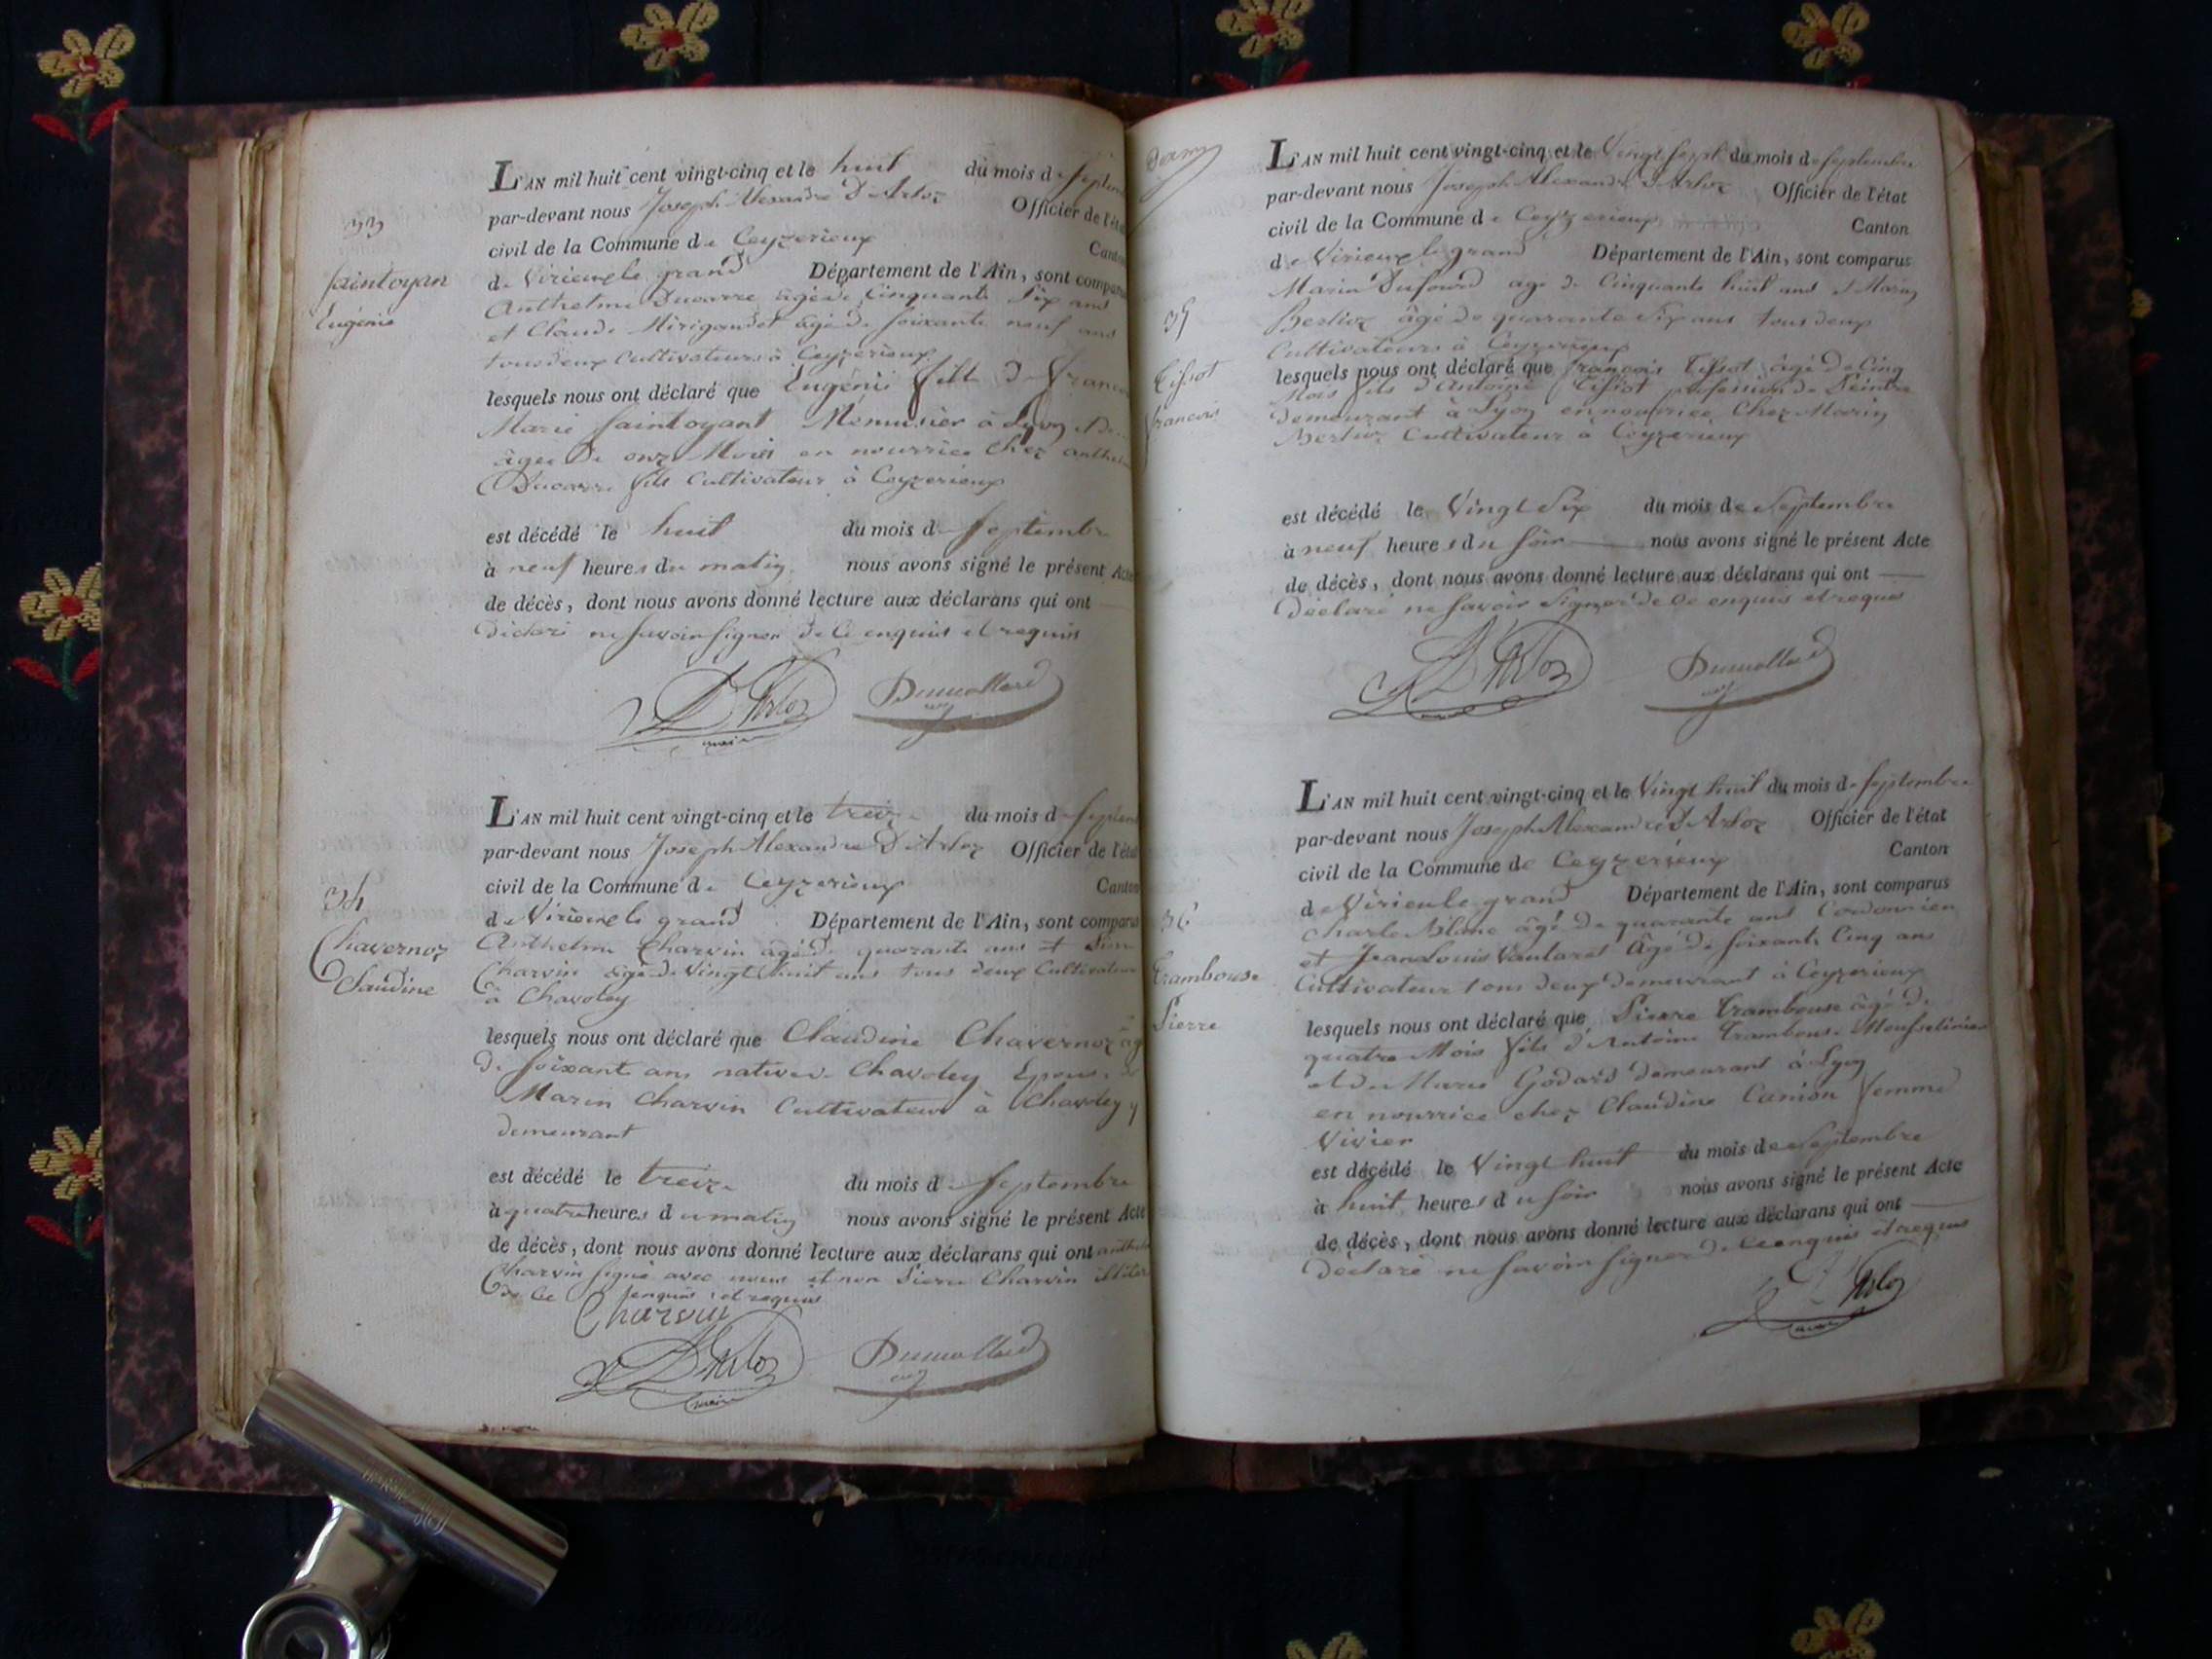 33
Saintoyan
Eugénie
L'AN mil huit cent vingt-cinq et le huit du mois d Septem
par-devant nous Joseph Alexandre D'Arloz Officier de l'éta
civil de la Commune de Ceyzerieux Canton
de Virieu le grand Département de l'Ain, sont comparus
Anthelme Ducarre âgé de Cinquante Six ans
et Claude Mirigaudet âgé de soixante neuf ans
tous deux Cultivateurs à Ceyzerieux
lesquels nous ont déclaré que Eugénie fille de François
Marie Saintoyant Menuisier à Lyon
âgée de onze Mois en nourrice chez Anthelme
Ducarre fils Cultivateur à Ceyzerieux
est décédé le huit du mois de Septembre
à neuf heures du matin nous avons signé le présent Acte
de décès, dont nous avons donné lecture aux déclarans qui ont
déclaré ne savoir signer de ce enquis et requis
D'Arloz Dumollard
maire
34
Chavernoz
Claudine
L'AN mil huit cent vingt-cinq et le treize du mois de Septem
par-devant nous Joseph Alexandre D'Arloz Officier de l'état
civil de la Commune de Ceyzerieux Canton
de Virieu le grand Département de l'Ain, sont comparus
Anthelme Charvin âgé de quarante ans et Pierre
Charvin âgé de vingt huit ans tous deux Cultivateurs
à Chavoley
lesquels nous ont déclaré que Claudine Chavernoz âg
de soixante ans native de Chavoley Epouse de
Marin Charvin Cultivateur à Chavoley y
demeurant
est décédé le treize du mois de Septembre
à quatre heures du matin nous avons signé le présent Acte
de décès, dont nous avons donné lecture aux déclarans qui ont anthel
Charvin signé avec nous et non Pierre Charvin illiter
de ce enquis et requis
Charvin
D'Arloz Dumollard
maire
35
Tissot
françois
L'AN mil huit cent vingt-cinq et le Vingt sept du mois de Septembre
par-devant nous Joseph Alexandre D'Arloz Officier de l'état
civil de la Commune de Ceyzerieux Canton
de Virieu le grand Département de l'Ain, sont comparus
Marin Dufourd âgé de Cinquante huit ans et Marin
Berlioz âgé de quarante Six ans tous deux
Cultivateurs à Ceyzerieux
lesquels nous ont déclaré que françois Tissot âgé de Cinq
Mois fils d'Antoine Tissot profession de Peintre
demeurant à Lyon en nourrice Chez Marin
Berlioz Cultivateur à Ceyzerieux
est décédé le Vingt Six du mois de Septembre
à neuf heures du soir nous avons signé le présent Acte
de décès, dont nous avons donné lecture aux déclarans qui ont
Déclaré ne savoir Signer de Ce enquis et requis
D'Arloz Dumollard
36
Trambouse
Pierre
L'AN mil huit cent vingt-cinq et le Vingt huit du mois de Septembre
par-devant nous Joseph Alexandre d'Arloz Officier de l'état
civil de la Commune de Ceyzerieux Canton
de Virieu le grand Département de l'Ain, sont comparus
Charle Blanc âgé de quarante ans Cordonnier
et Jean Louis Vautaret Agé de soixante Cinq ans
Cultivateur tous deux demeurant à Ceyzerieux
lesquels nous ont déclaré que Pierre Trambouse âgé de
quatre Mois fils d'Antoine Trambouse Mousselinier
et de Marie Godard demeurant à Lyon
en nourrice chez Claudine Camion femme
Vivier
est décédé le Vingt huit du mois de Septembre
à huit heures du soir nous avons signé le présent Acte
de décès, dont nous avons donné lecture aux déclarans qui ont
Déclaré ne savoir signer de Ce enquis et requis
D'Arloz
maire